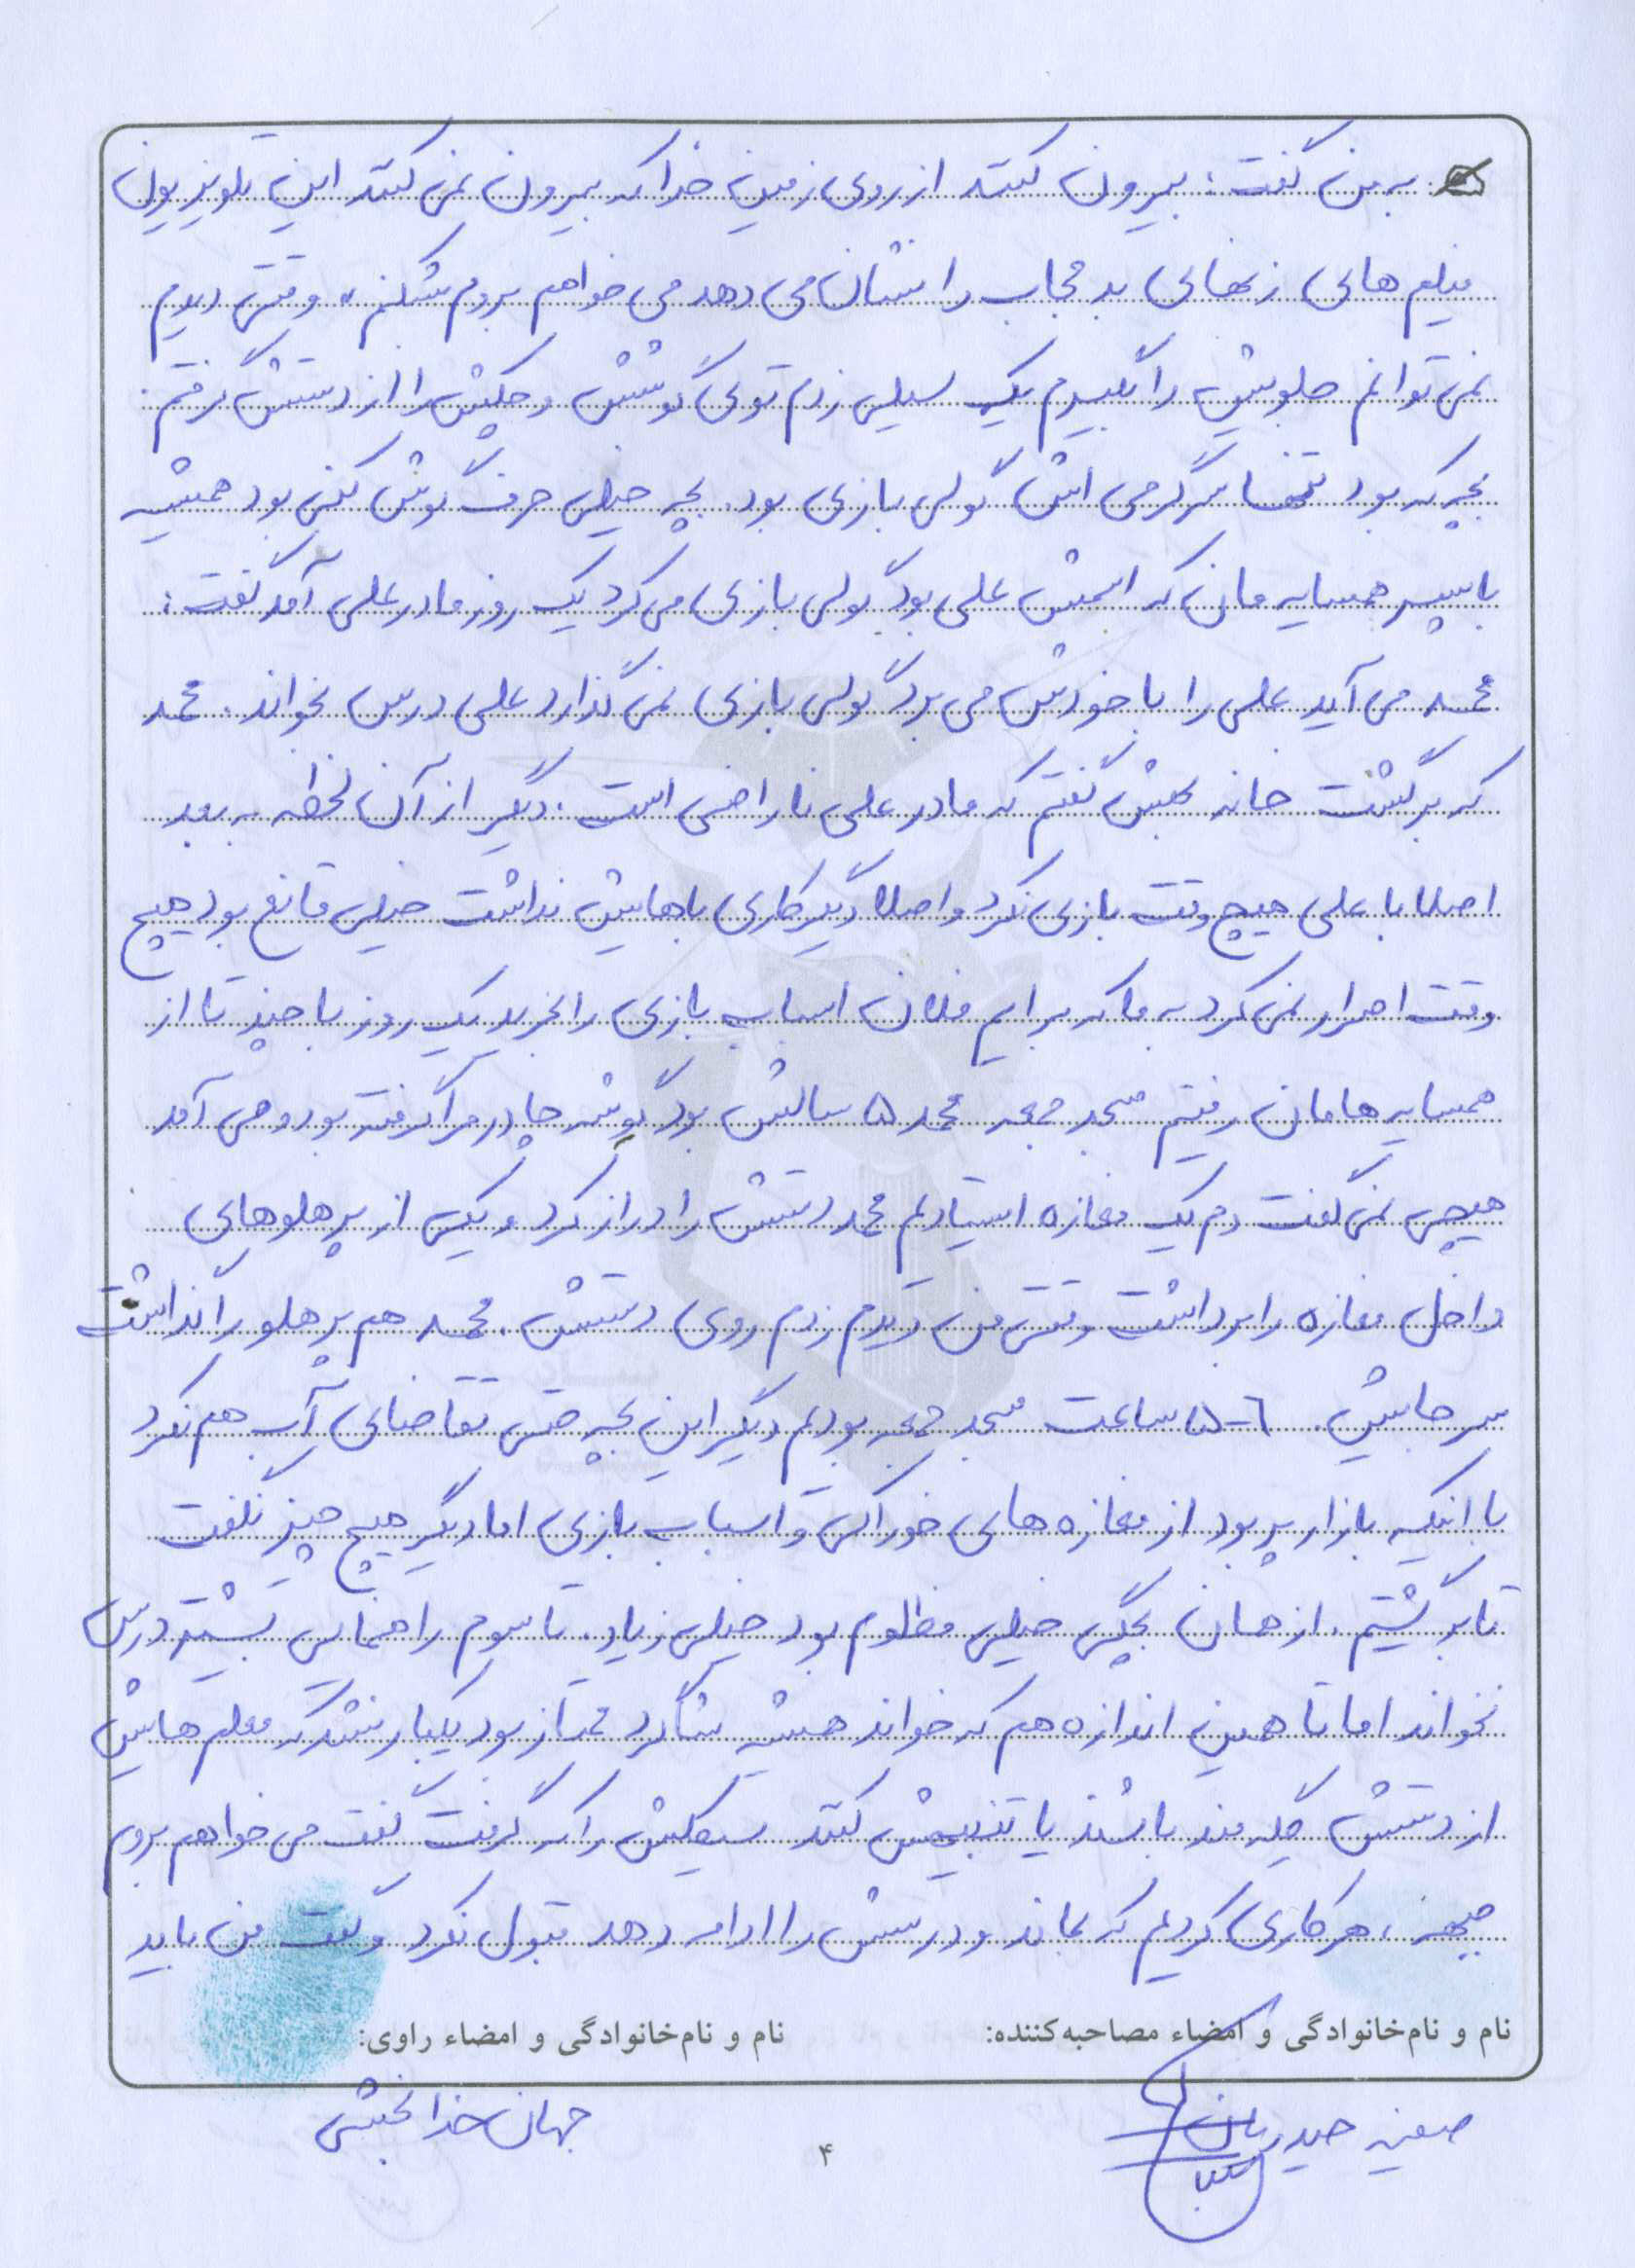 به من گفت: بیرون کنند از روی زمین خدا که بیرون نمی کنند این تلویزیون
فیلم هایی زنهایی بد حجاب را نشان می دهد می خواهم بروم بشکنم» وقتی دیدم
نمی توانم جلویش را بگیرم یک سیلی زدم توی گوشش و چکش را از دستش گرفتم.
بچه که بود تنها سرگرمی اش گولی بازی بود. بچه خیلی حرف گوش کنی بود همیشه
با پسر همسایه مان که اسمش علی بود گولی بازی می کرد یک روز مادر علی آمد گفت:
محمد می آید علی را با خودش می برد گولی بازی نمی گذارد علی درس بخواند. محمد
که برگشت خانه بهش گفتم که مادر علی ناراضی است. دیگر از آن لحظه به بعد
اصلا با علی هیچ وقت بازی نکرد و اصلا دیگر کاری باهایش نداشت خیلی قانع بود هیچ
وقت اصرار نمی کرد به ما که برایم فلان اسباب بازی را بخرید یک روز با چند تا از
همسایه هامان رفتیم مسجد جمعه محمد ۵ سالش بود گوشه چادر مرا گرفته بود و می آمد
هیچی نمی گفت دم یک مغازه استادیم محمد دستش را دراز کرد و یکی از پرهلوهای
داخل مغازه را برداشت وقتی من دیدم زدم روی دستش. محمد هم پرهلو را گذاشت
سر جایش. ۵-۶ ساعت مسجد جمعه بودیم دیگر این بچه حتی تقاضای آب هم نکرد
با اینکه بازار پر بود از مغازه های خوراکی و اسباب بازی اما دیگر هیچ چیز نگفت
تا برگشتیم. از همان بچگی خیلی مظلوم بود خیلی زیاد. تا سوم راهنمایی بیشتر درس
نخواند اما تا همین اندازه هم که خواند همیشه شاگرد ممتاز بود یکبار نشد که معلم هاش
از دستش گله مند باشند یا تنبیهش کنند سیکلش را که گرفت گفت می خواهم بروم
جبهه، هر کاری کردیم که بماند و درسش را ادامه دهد قبول نکرد و گفت من باید
نام و نام‌خانوادگی و امضاء مصاحبه‌کننده:
نام و نام‌خانوادگی و امضاء راوی:
صفیه حیدریان
جهان خدابخشی
۴